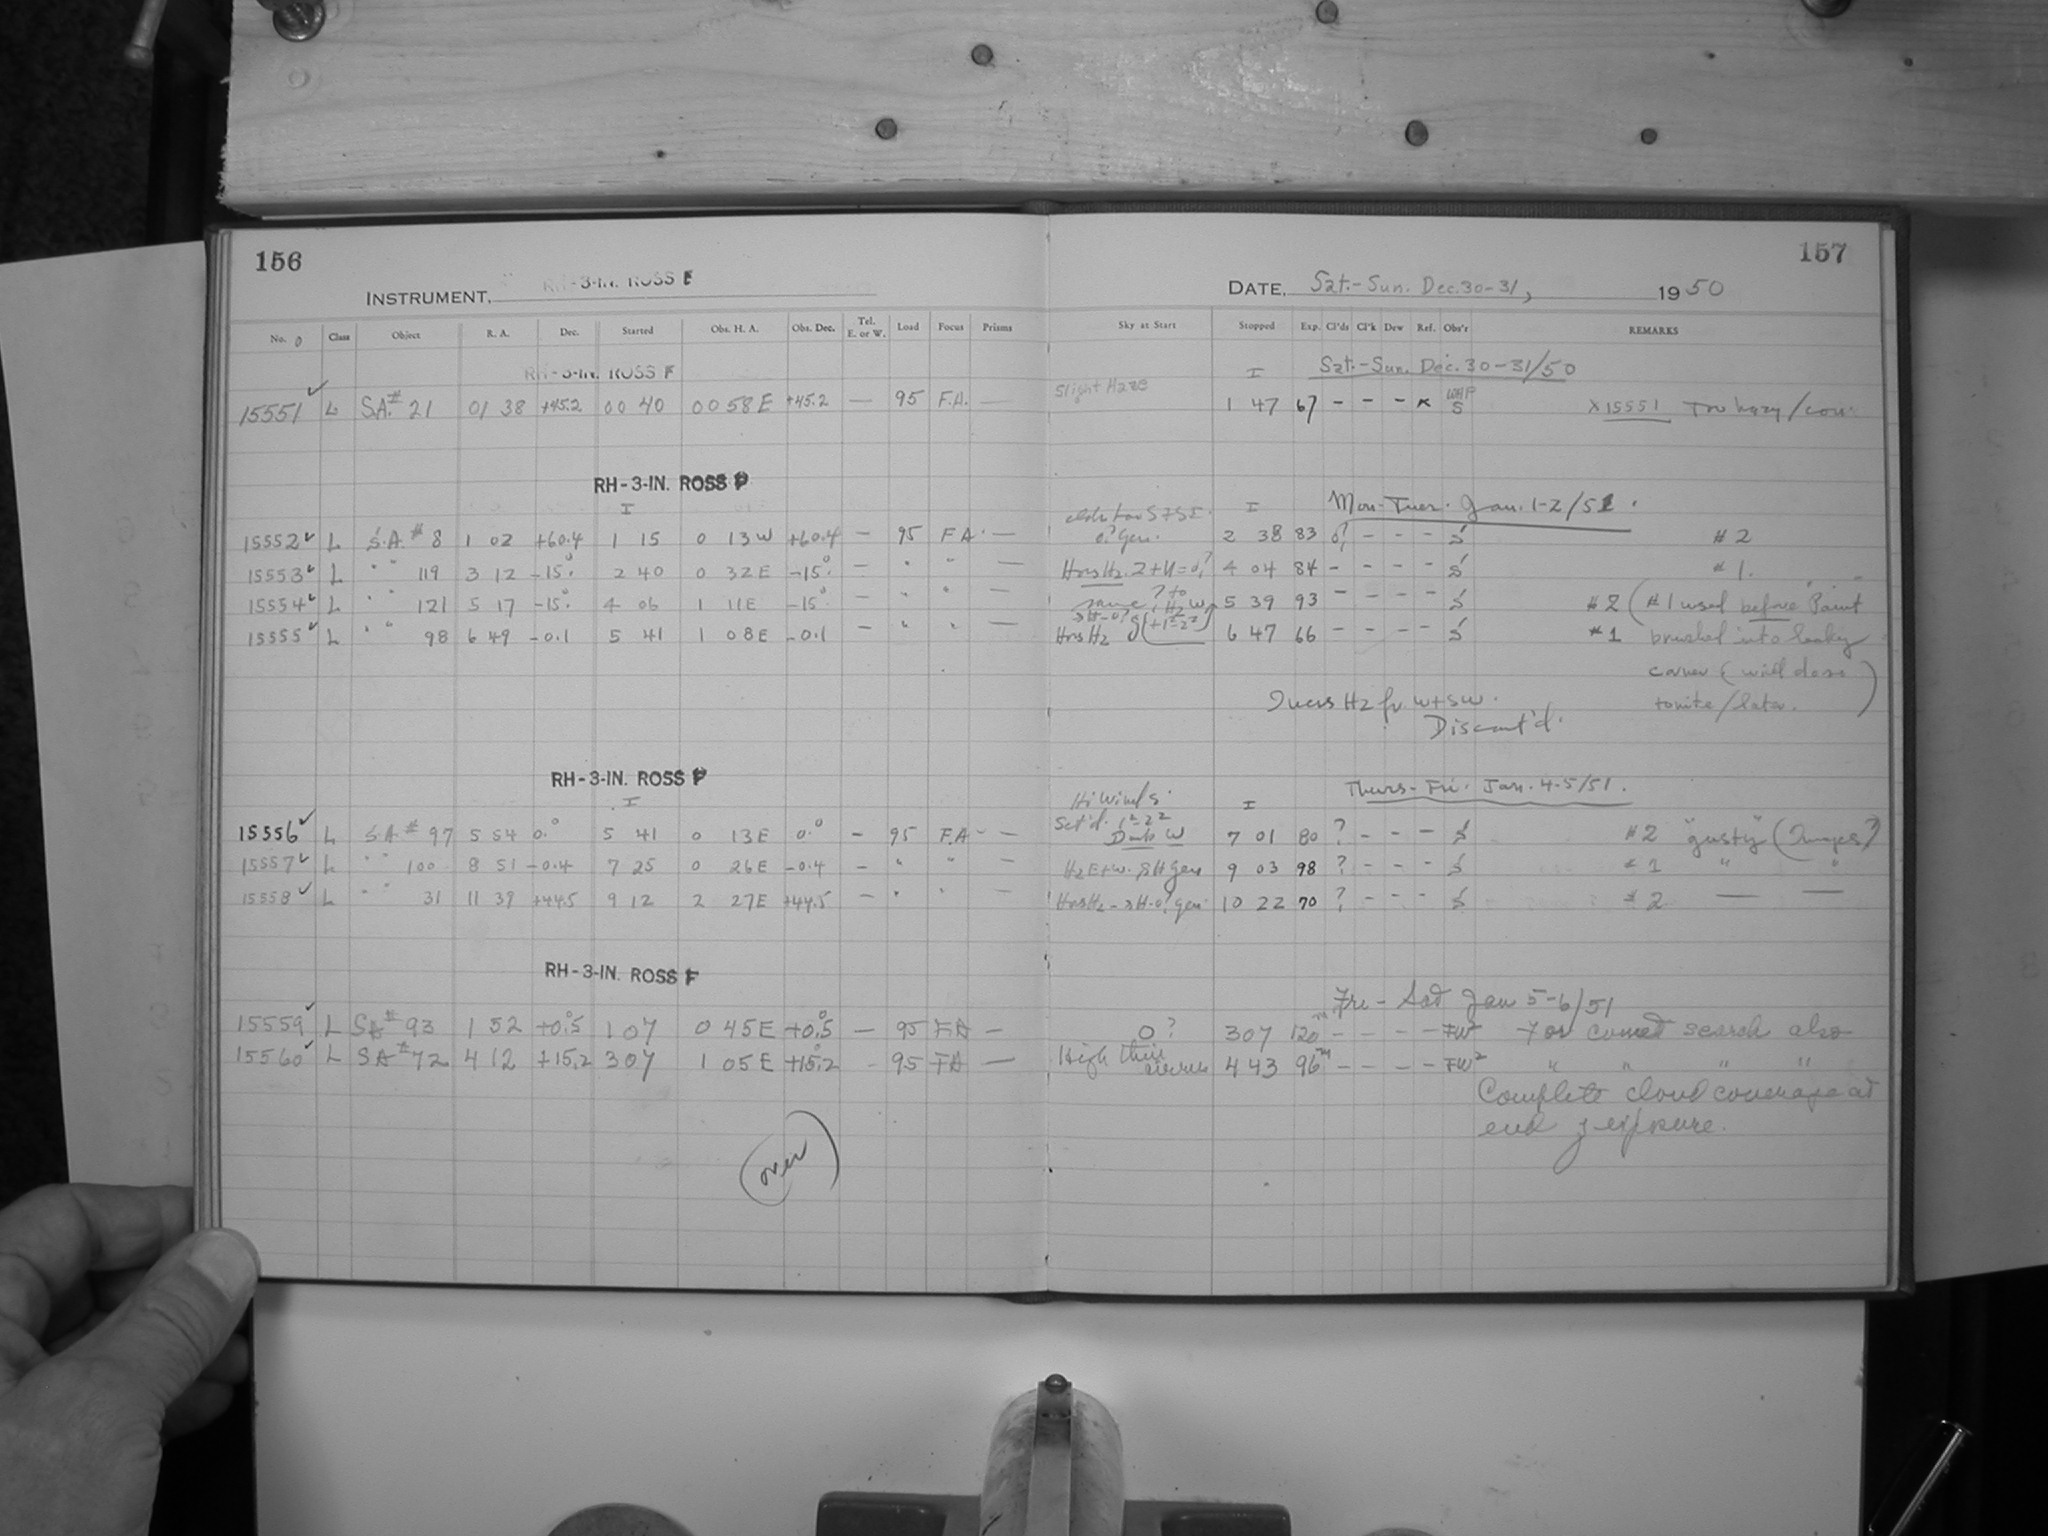 156
157
RH-3-IN. ROSS F
INSTRUMENT,
DATE, Sat.-Sun. Dec. 30-31, 1950
No. Class Object R. A. Dec. Started Obs. H. A. Obs. Dec. Tel. E. or W. Load Focus Prisms Sky at Start Stopped Exp. Cl'ds Cl'k Dew Ref. Obs'r REMARKS
RH-3-IN. ROSS F I Sat.-Sun. Dec. 30-31/50
15551 ✓ L SA.# 21 01 38 +45.2 00 40 00 58 E +45.2 — 95 F.A. — Slight Haze 1 47 67 - - - x WHP S X 15551 Too hazy/
RH-3-IN. ROSS F
I I Mon-Tues. Jan. 1-2/51.
15552 ✓ L S.A. # 8 1 02 +60.4 1 15 0 13 W +60.4 — 95 F A. — 0? Gen. 2 38 83 0? - - - S #2
15553 ✓ L " " 119 3 12 -15.° 2 40 0 32 E -15.° — " " — Hrs Hz. 4 04 84 - - - - S #1.
15554 ✓ L " " 121 5 17 -15.° 4 06 1 11 E -15° — " " — same 5 39 93 - - - - S #2 (#1 used before Paint
15555 ✓ L " " 98 6 49 -0.1 5 41 1 08 E -0.1 — " " — Hrs Hz 6 47 66 - - - - S #1 brushed into leaky
corner (
Hz fr. W+SW. tonite/later.)
Discont'd.
RH-3-IN. ROSS F
I Hi Winds. I Thurs-Fri. Jan. 4-5/51.
15556 ✓ L S.A. # 97 5 54 0.° 5 41 0 13 E 0.° — 95 F.A — Sct'd. Dark W 7 01 80 ? - - - S #2 "gusty" (Images?)
15557 ✓ L " " 100 8 51 -0.4 7 25 0 26 E -0.4 — " " — Hz E+W. Gen 9 03 98 ? - - - S #1 " "
15558 ✓ L " " 31 11 39 +44.5 9 12 2 27 E +44.5 — " " — Hrs Hz gen. 10 22 70 ? - - - S #2 — —
RH-3-IN. ROSS F
Fri - Sat Jan 5-6/51
15559 ✓ L SA # 93 1 52 +0.5 1 07 0 45 E +0.5 — 95 FA — 0? 3 07 120 m - - - - FW² For comet search also
15560 ✓ L SA # 72 4 12 +15.2 3 07 1 05 E +15.2 - 95 FA — High thin cirrus 4 43 96 m - - - - FW² " " " "
Complete cloud coverage at
end of exposure.
(over)